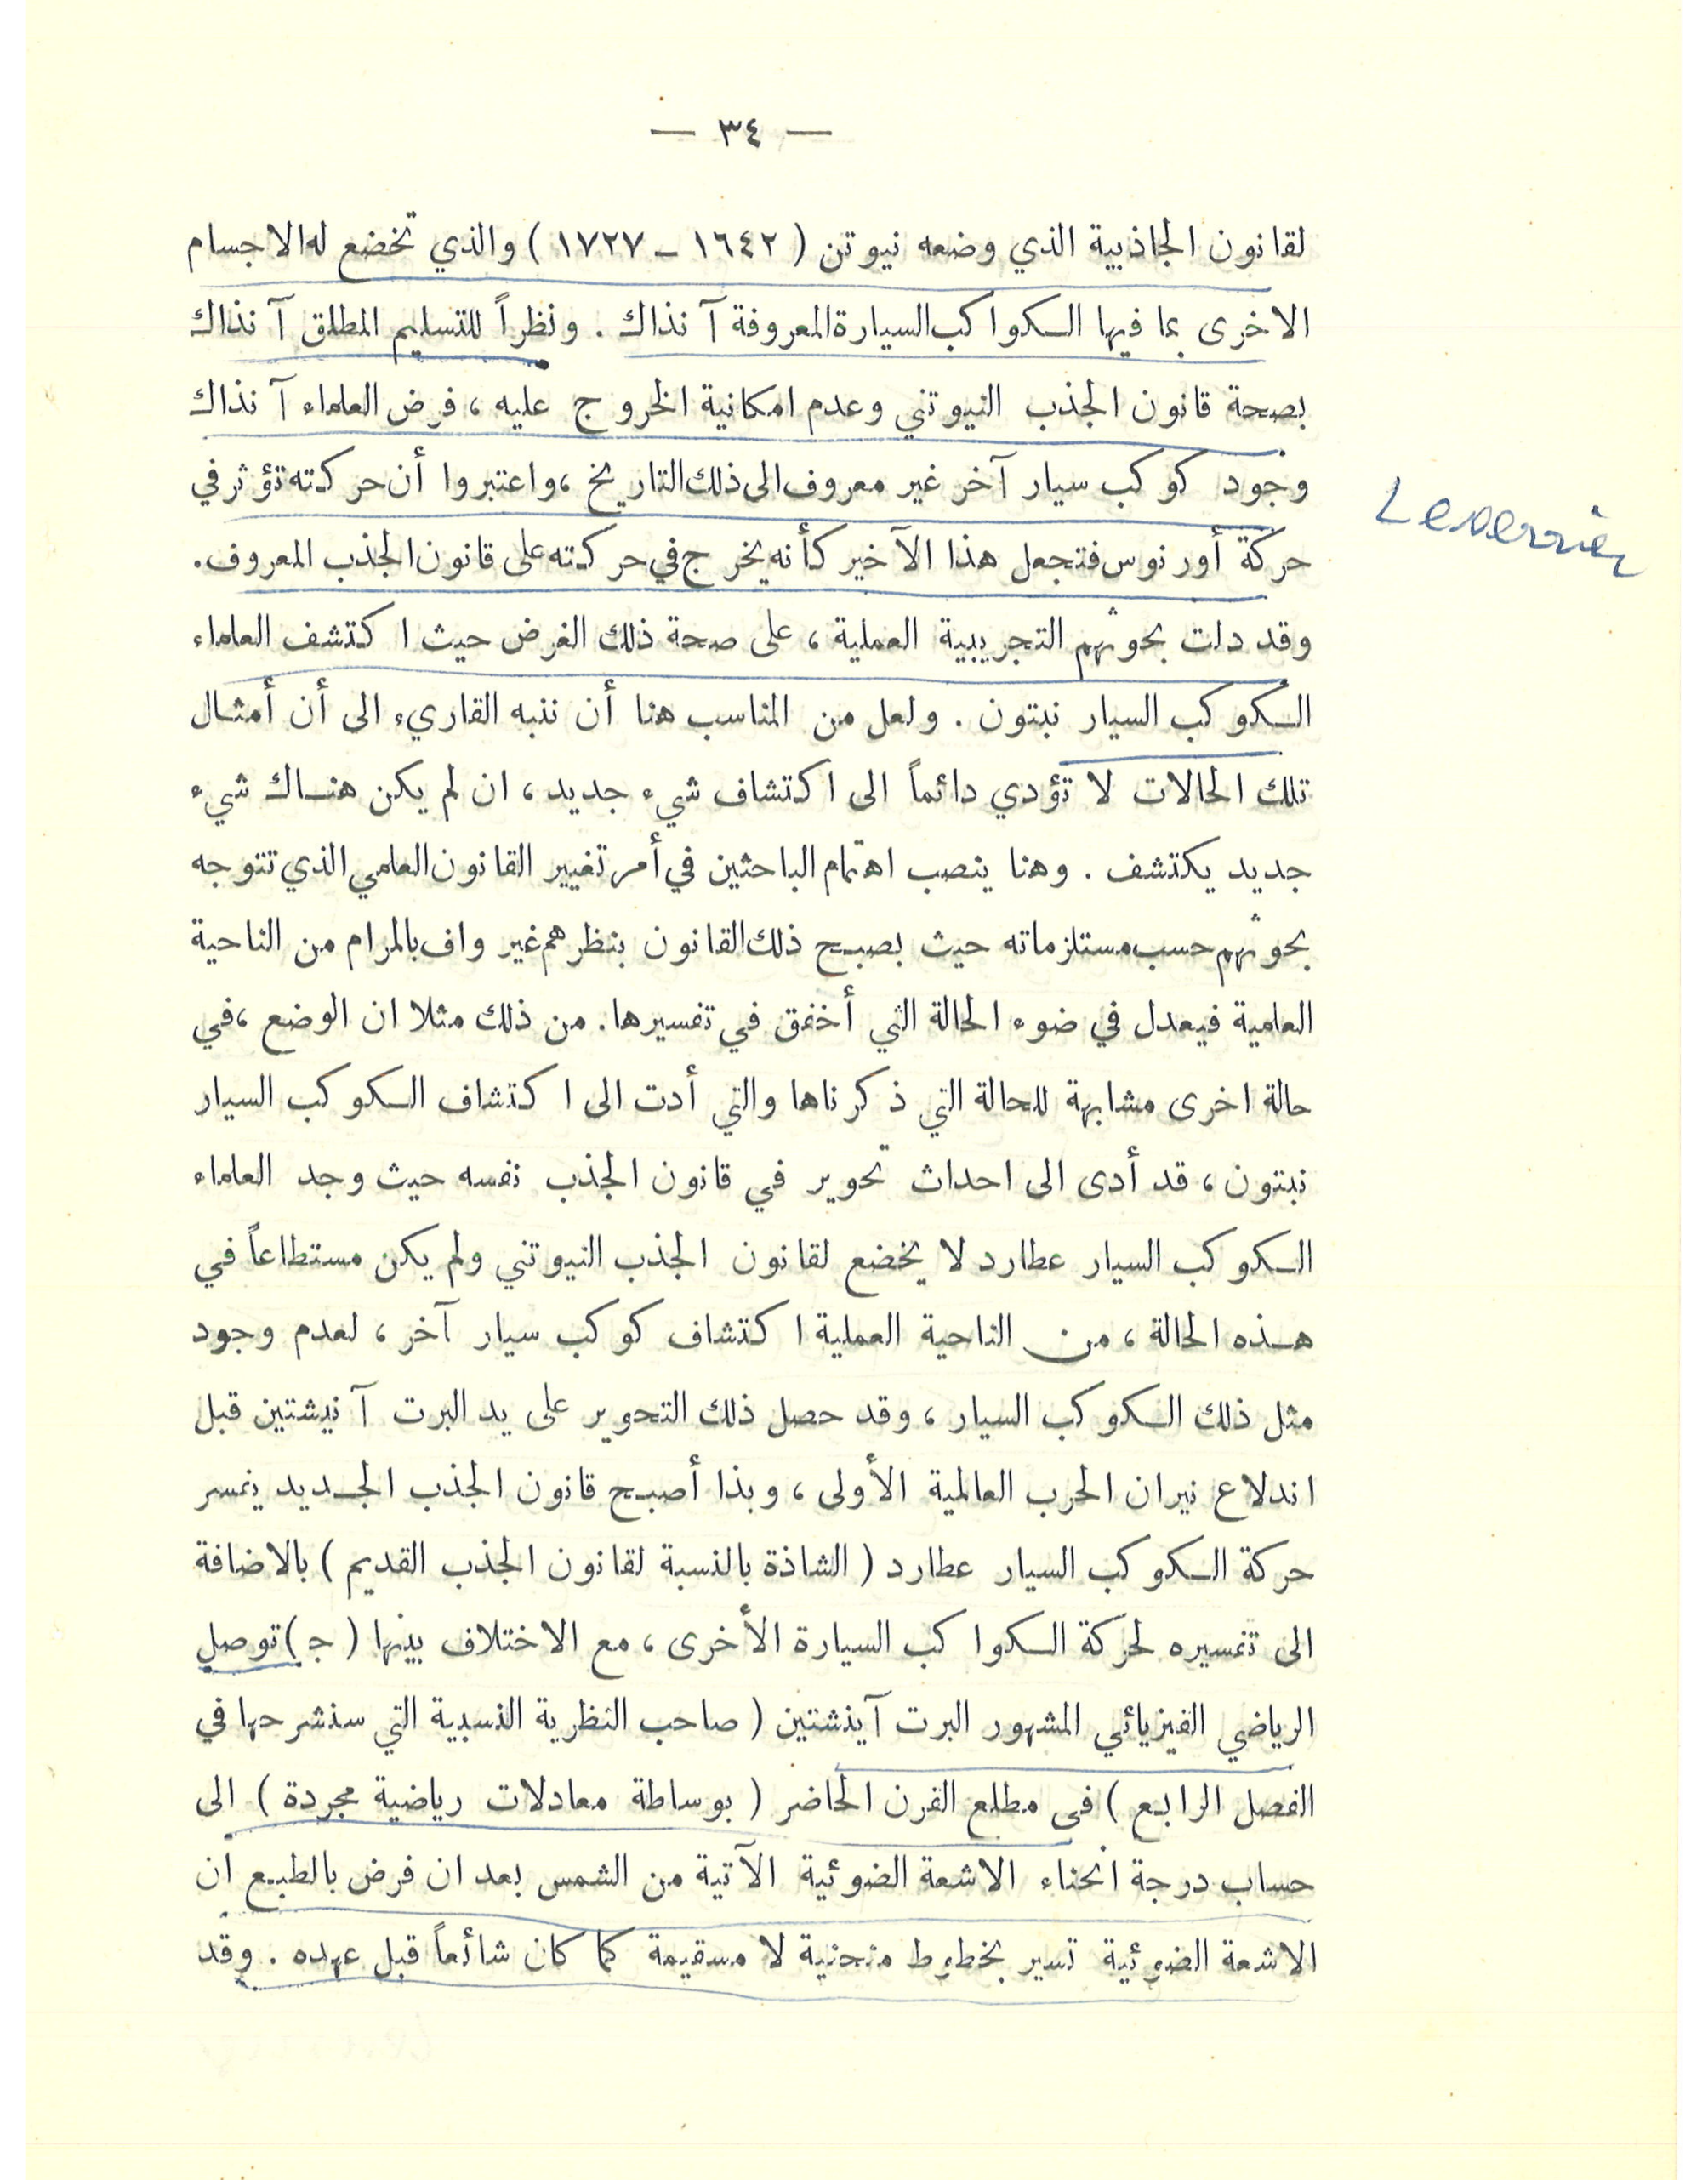 — ٣٤ —
لقانون الجاذبية الذي وضعه نيوتن ( ١٦٤٢ – ١٧٢٧ ) والذي تخضع له الاجسام
الاخرى بما فيها الكواكب السيارة المعروفة آنذاك . ونظراً للتسليم المطلق آنذاك
بصحة قانون الجذب النيوتني وعدم امكانية الخروج عليه ، فرض العلماء آنذاك
وجود كوكب سيار آخر غير معروف الى ذلك التاريخ ، واعتبروا أن حركته تؤثر في
Leverrier
حركة أورنوس فتجعل هذا الآخير كأنه يخرج في حركته على قانون الجذب المعروف .
وقد دلت بحوثهم التجريبية العملية ، على صحة ذلك الفرض حيث اكتشف العلماء
الكوكب السيار نبتون . ولعل من المناسب هنا أن ننبه القاريء الى أن أمثال
تلك الحالات لا تؤدي دائماً الى اكتشاف شيء جديد ، ان لم يكن هناك شيء
جديد يكتشف . وهنا ينصب اهتمام الباحثين في أمر تغيير القانون العلمي الذي تتوجه
بحوثهم حسب مستلزماته حيث بصبح ذلك القانون بنظرهم غير واف بالمرام من الناحية
العلمية فيعدل في ضوء الحالة التي أخفق في تفسيرها . من ذلك مثلا ان الوضع ، في
حالة اخرى مشابهة للحالة التي ذكرناها والتي أدت الى اكتشاف الكوكب السيار
نبتون ، قد أدى الى احداث تحوير في قانون الجذب نفسه حيث وجد العلماء
الكوكب السيار عطارد لا يخضع لقانون الجذب النيوتني ولم يكن مستطاعاً في
هذه الحالة ، من الناحية العملية اكتشاف كوكب سيار آخر ، لعدم وجود
مثل ذلك الكوكب السيار ، وقد حصل ذلك التحوير على يد البرت آنيشتين قبل
اندلاع نيران الحرب العالمية الأولى ، وبذا أصبح قانون الجذب الجديد يفسر
حركة الكوكب السيار عطارد ( الشاذة بالنسبة لقانون الجذب القديم ) بالاضافة
الى تفسيره لحركة الكواكب السيارة الأخرى ، مع الاختلاف بينها ( ج ) توصل
الرياضي الفيزيائي المشهور البرت آينشتين ( صاحب النظرية النسبية التي سنشرحها في
الفصل الرابع ) في مطلع القرن الحاضر ( بوساطة معادلات رياضية مجردة ) الى
حساب درجة انحناء الاشعة الضوئية الآتية من الشمس بعد ان فرض بالطبع ان
الاشعة الضوئية تسير بخطوط منحنية لا مسقيمة كما كان شائعاً قبل عهده . وقد